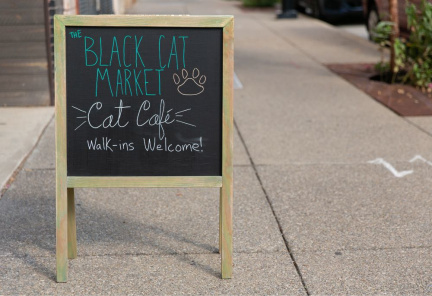 THE
BLACK CAT
MARKET
Cat Café
Walk-ins Welcome!